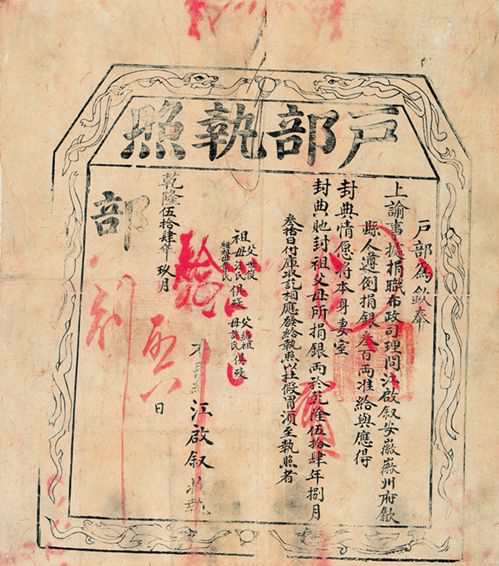 戶部執照
戶部為欽奉
上諭事據捐職布政司理問江啟叙安徽徽州府歙
縣人遵例捐銀叁百兩准給與應得
封典情愿將本身妻室
封典貤封祖父母所捐銀兩於乾隆伍拾肆年捌月
叁拾日付庫收訖相應發給執照以杜假冒須至執照者
祖父 俱歿 父 祖 母 氏 俱歿
江啟叙
乾隆伍拾肆年玖月 日
部